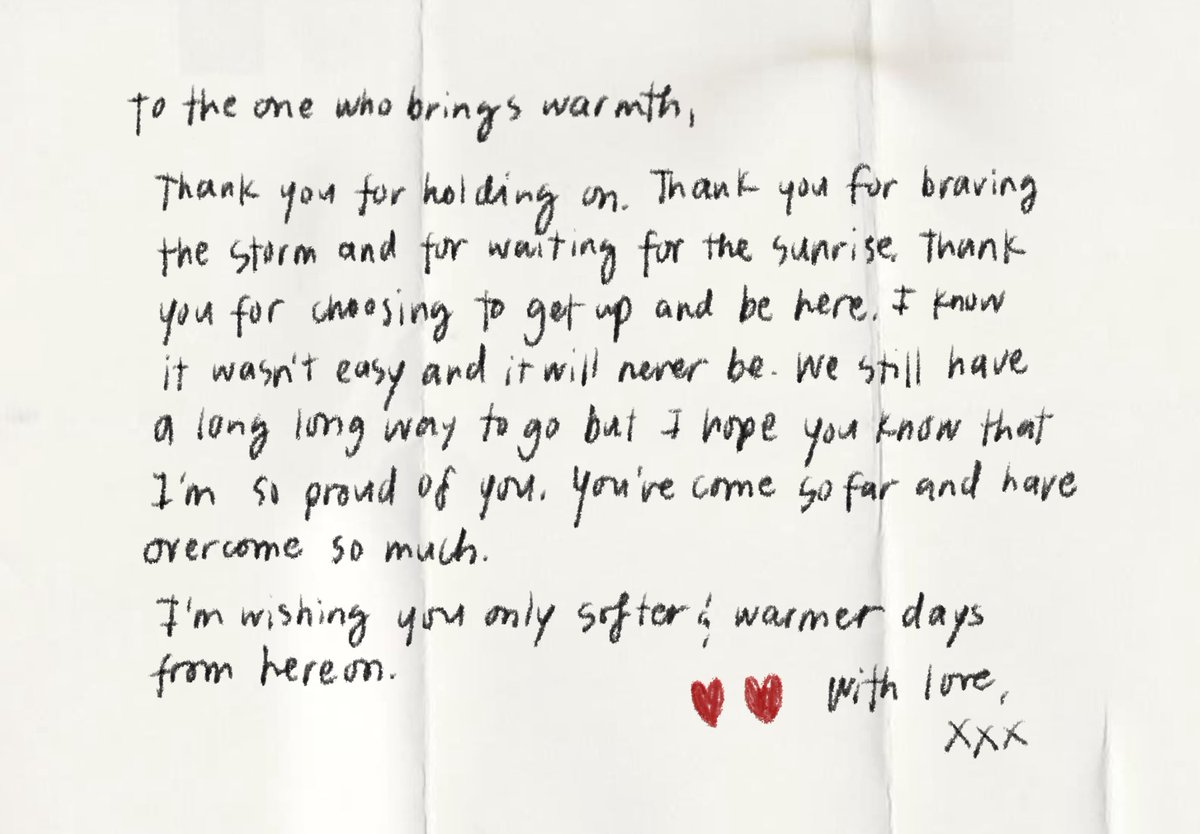 To the one who brings warmth,
Thank you for holding on. Thank you for braving
the storm and for waiting for the sunrise. Thank
you for choosing to get up and be here. I know
it wasn't easy and it will never be. We still have
a long long way to go but I hope you know that
I'm so proud of you. You've come so far and have
overcome so much.
I'm wishing you only softer & warmer days
from here on.
With love,
xxx